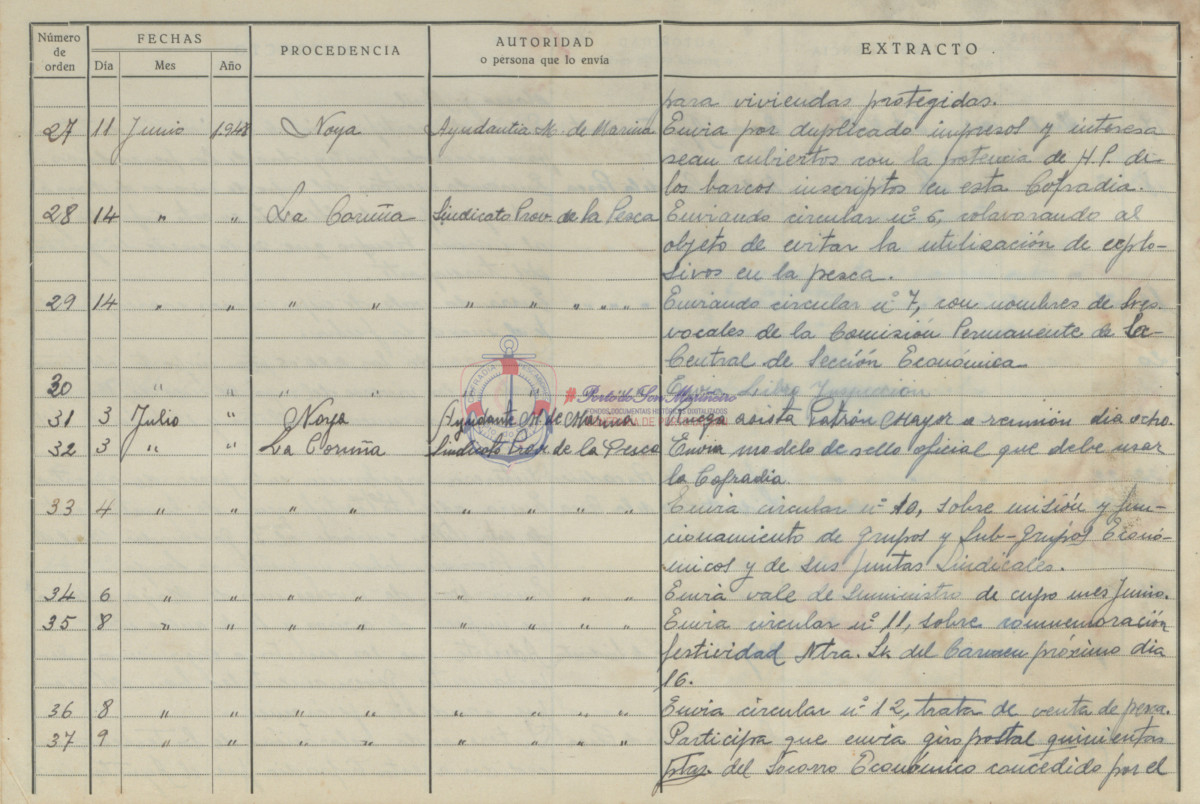 Número de orden FECHAS PROCEDENCIA AUTORIDAD o persona que lo envía EXTRACTO
Día Mes Año
para viviendas protegidas.
27 11 Junio 1948 Noya Ayudantia M. de Marina Envia por duplicado impresos y interesa
sean cubiertos con la potencia de H.P. de
los barcos inscriptos en esta Cofradia.
28 14 " " La Coruña Sindicato Prov. de la Pesca Enviando circular nº 6, colavorando al
objeto de evitar la utilización de explo-
sivos en la pesca.
29 14 " " " " " " " " Enviando circular nº 7, con nombres de Sres.
vocales de la Comisión Permanente de la
Central de Sección Económica.
30 " " " " " Envia Libro Inspección
31 3 Julio " Noya Ayudante M. de Marina Ruega asista Patrón Mayor a reunión dia ocho.
32 3 " " La Coruña Sindicato Prov. de la Pesca Envia modelo de sello oficial que debe usar
la Cofradia.
33 4 " " " " " " " " Envia circular nº 10, sobre misión y fun-
cionamiento de grupos y Sub-Grupos Econó-
micos y de sus Juntas Sindicales.
34 6 " " " " " " " " Envia vale de Suministro de cupo mes Junio.
35 8 " " " " " " " " Envia circular nº 11, sobre conmemoración
festividad Ntra. Sª del Carmen próximo dia
16.
36 8 " " " " " " " " Envia circular nº 12, trata de venta de pesca.
37 9 " " " " " " " " Participa que envia giro postal quinientas
ptas. del Socorro Económico concedido por el
#Porto do Son Marineiro
FONDOS DOCUMENTAIS HISTÓRICOS DIXITALIZADOS